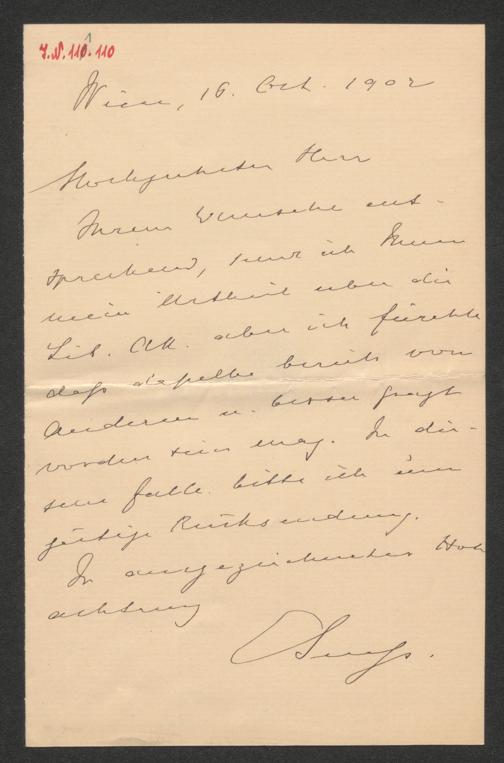 J.N. 110.110
1
Wien, 16. Oct. 1902
Hochgeehrter Herr
Ihrem Wunsche ent-
sprechend, send ich Ihnen
mein Urtheil über die
Lit. Ak. aber ich fürchte
daß daßelbe bereits von
Anderen u. besser gesagt
worden sein mag. In die-
sem Falle bitte ich um
gütige Rücksendung.
In ausgezeichneter Hoch
achtung
ESuess.